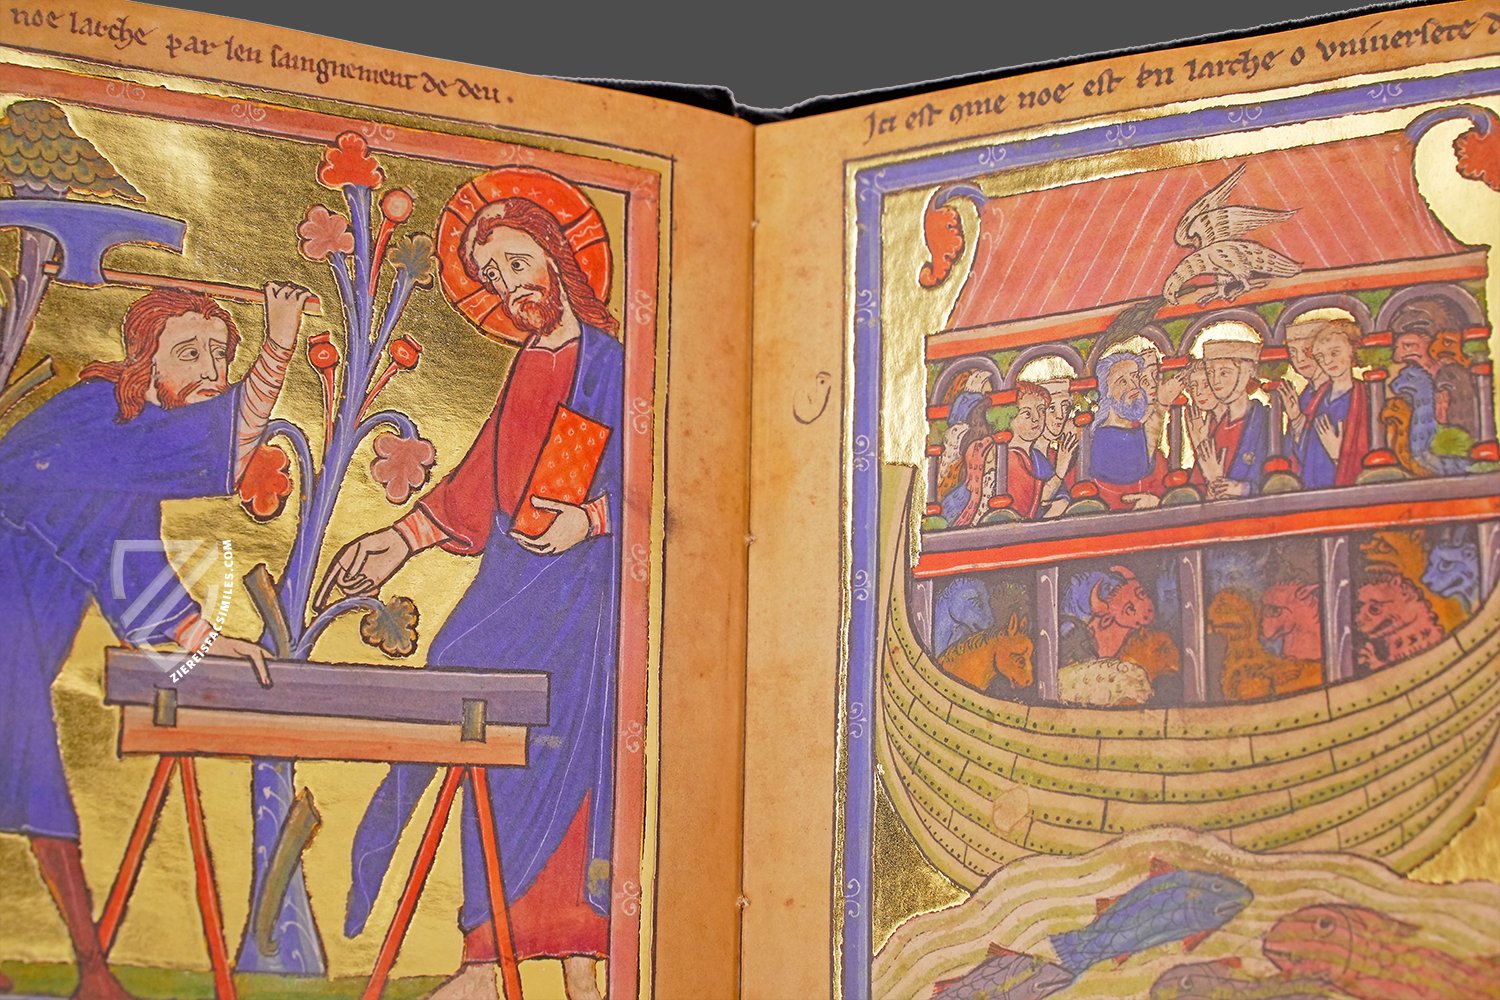 noe larche par len saingnement de deu.
Ici est que noe est en larche o vniuersete d
ZIEREISFACSIMILES.COM